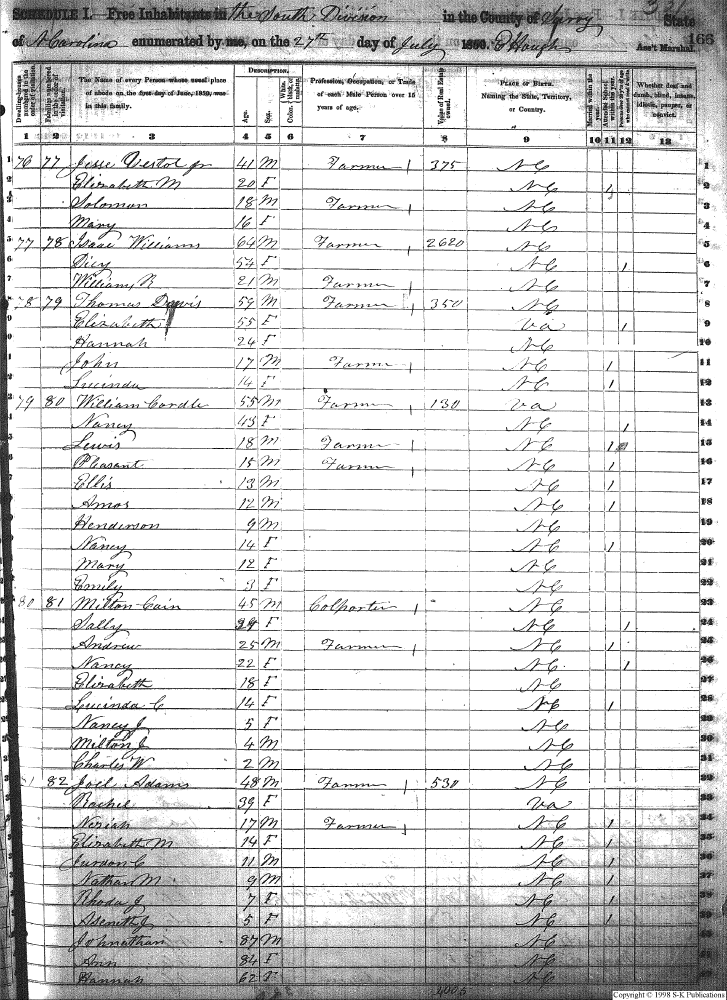 SCHEDULE I. Free Inhabitants in the South Division in the County of Surry State
of N Carolina enumerated by me, on the 27th day of July 1850. Ass't Marshal.
166
Dwelling-houses numbered in the order of visitation. Families numbered in the order of visitation. The Name of every Person whose usual place of abode on the first day of June, 1850, was in this family. DESCRIPTION. Age. Sex. White, black, or mulatto. Color. Profession, Occupation, or Trade of each Male Person over 15 years of age. Value of Real Estate owned. PLACE OF BIRTH. Naming the State, Territory, or Country. Married within the year. Attended School within the year. Whether deaf and dumb, blind, insane, idiotic, pauper, or convict.
1 2 3 4 5 6 7 8 9 10 11 12 13
1 76 77 Jesse Vestol jr 41 M Farmer 375 NC 1
2 Elizabeth M 20 F NC 2
3 Solomon 18 M Farmer NC 3
4 Mary 16 F NC 4
5 77 78 Isaac Williams 64 M Farmer 2620 NC 5
6 Dicy F NC 1 6
7 William R 21 M Farmer NC 7
8 78 79 Thomas Davis 59 M Farmer 350 NC 8
9 Elizabeth 55 F Va 1 9
10 Hannah 24 F NC 10
11 John 17 M Farmer NC 1 11
12 Lucinda 14 F NC 1 12
13 79 80 William Cordle 55 M Farmer 130 Va 13
14 Nancy 43 F NC 1 14
15 Lewis 18 M Farmer NC 1 15
16 Pleasant 15 M Farmer NC 1 16
17 Ellis 13 M NC 1 17
18 Amos 12 M NC 1 18
19 Henderson 9 M NC 19
20 Nancy 14 F NC 1 20
21 Mary 12 F NC 21
22 Emily 3 F NC 22
23 80 81 Milton Cain 45 M Colporter NC 23
24 Sally 39 F NC 1 24
25 Andrew 25 M Farmer NC 1 25
26 Nancy 22 F NC 1 26
27 Elizabeth 18 F NC 27
28 Lucinda C 14 F NC 1 28
29 Nancy J 5 F NC
30 Milton J 4 M NC
31 Charles W 2 M NC
1 82 Joel Adams 48 M Farmer 530 NC
Rachel 39 F Va
17 M Farmer NC 1
Elizabeth M 14 F NC 1
11 M NC 1
Nathan M 9 M NC 1
Rhoda J 7 F NC 1
5 F NC 1
Johnathan 87 M NC
Ann 84 F NC
Hannah 62 F NC
Copyright © 1998 S-K Publications